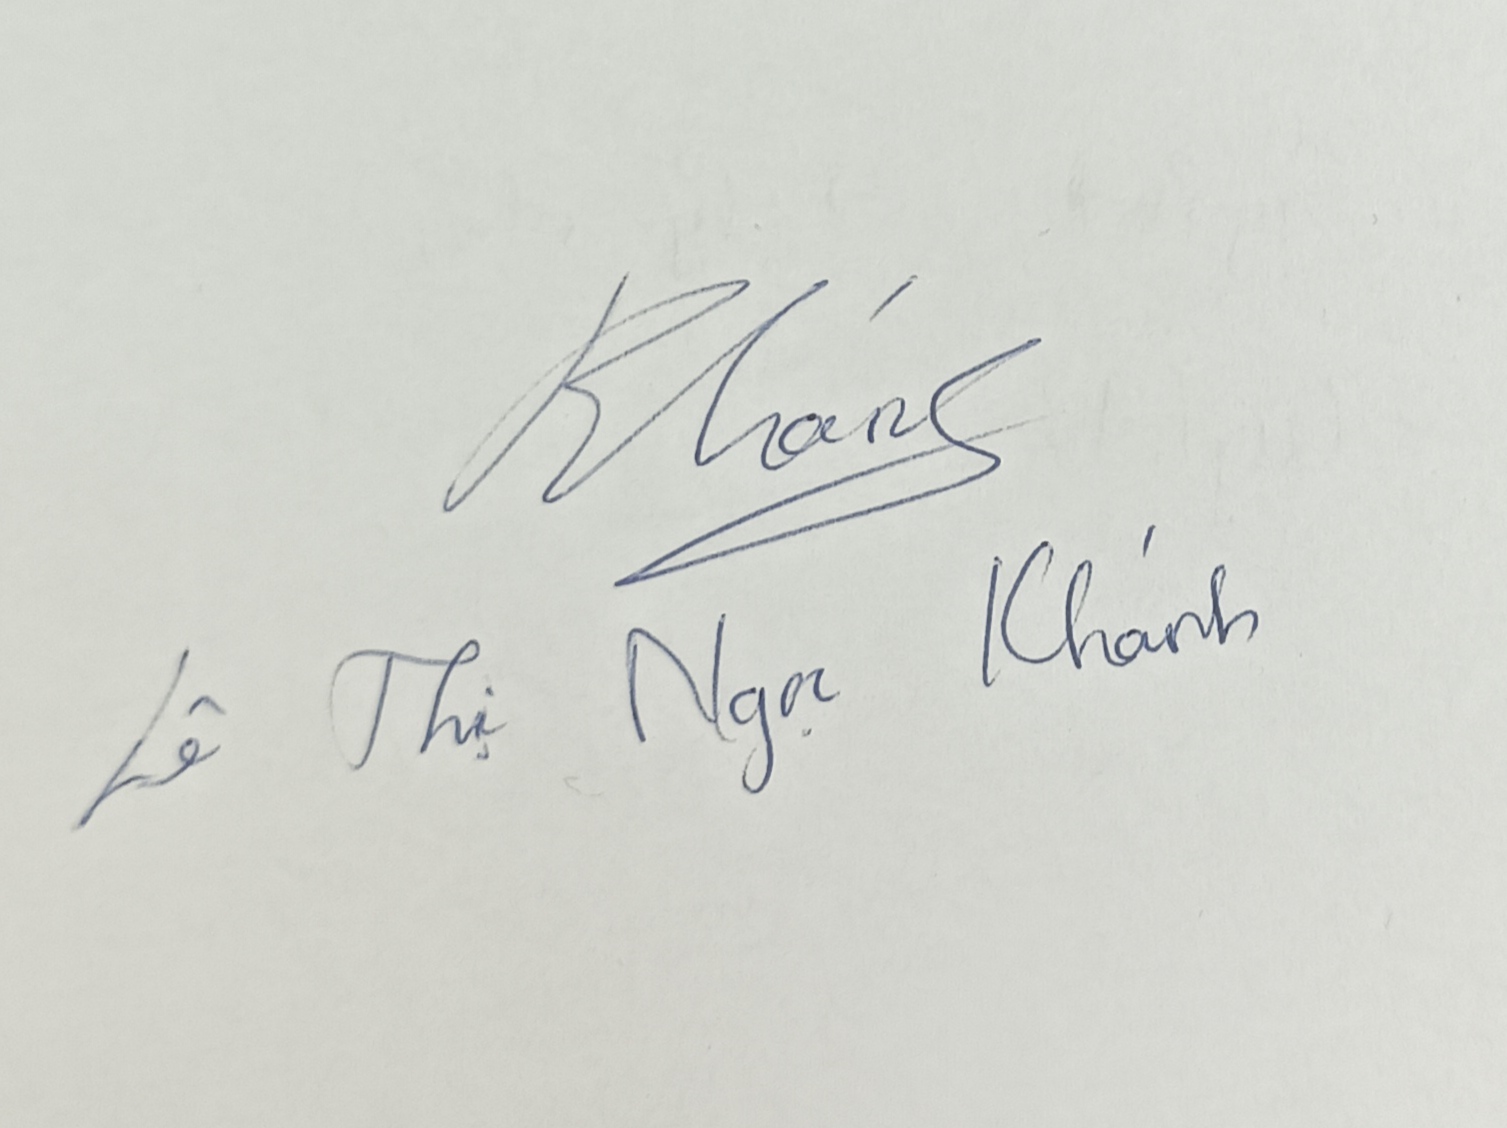 Khánh
Lê Thị Ngọc Khánh